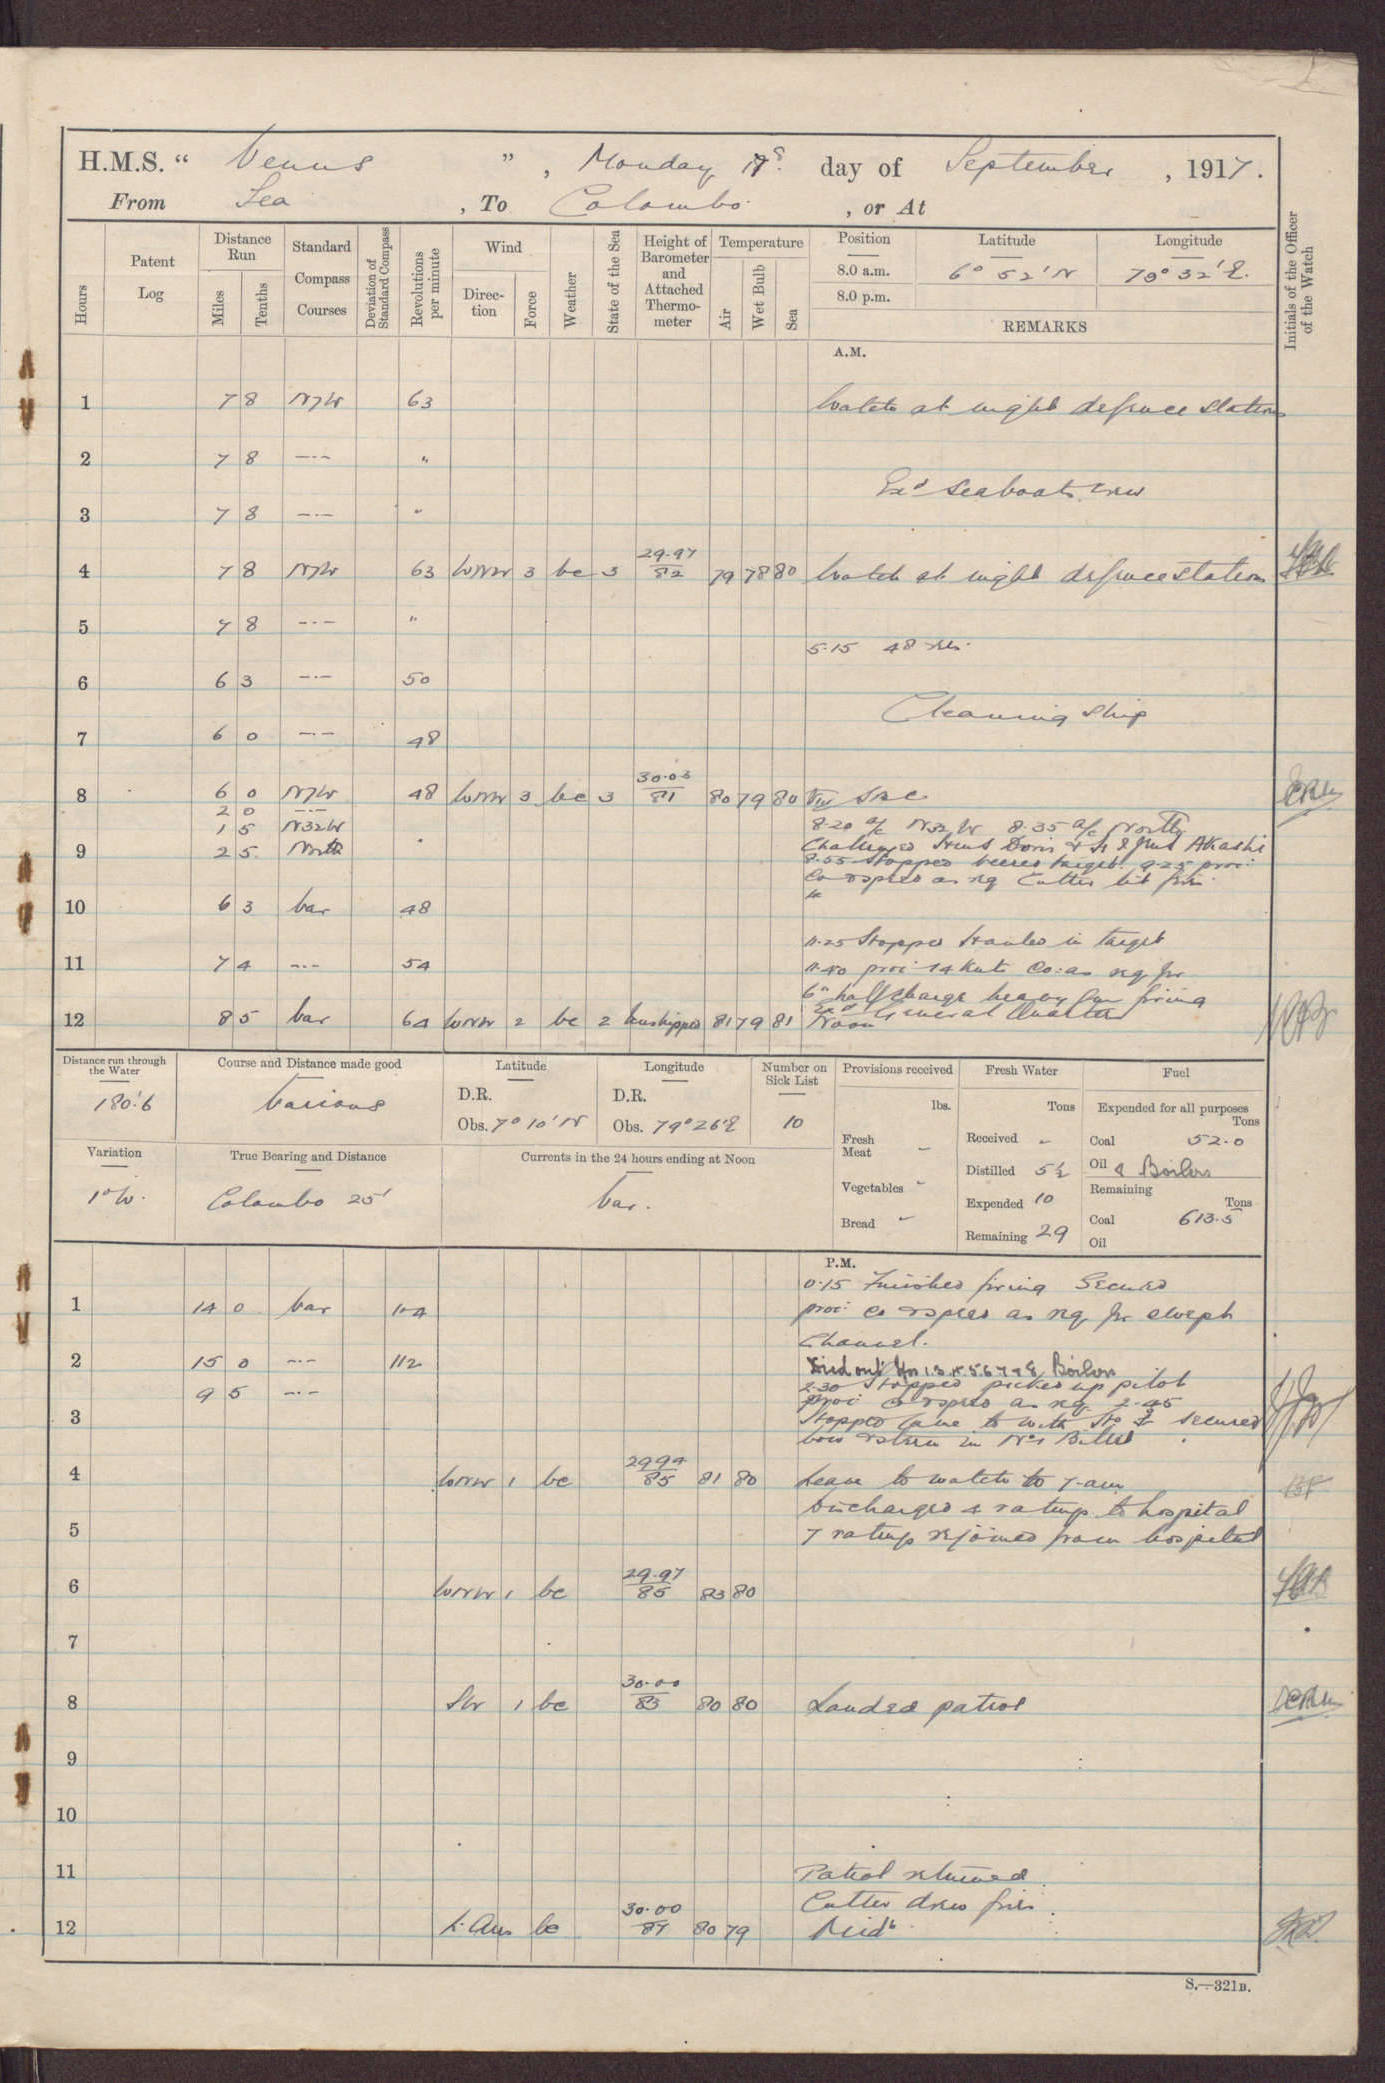 H.M.S. “ Venus ” , Monday 17 day of September , 1917.
From Sea , To Colombo , or At
Hours
Patent Log
Distance Run
Miles
Tenths
Standard Compass Courses
Deviation of Standard Compass
Revolutions per minute
Wind
Direction
Force
Weather
State of the Sea
Height of Barometer and Attached Thermometer
Temperature
Air
Wet Bulb
Sea
Position Latitude Longitude
8.0 a.m. 6° 52' N 79° 32' E.
8.0 p.m.
REMARKS
Initials of the Officer of the Watch
A.M.
1 7 8 N7W 63 Watch at night defence stations
2 7 8 –·– "
Exd seaboats crew
3 7 8 –·– "
4 7 8 N7W 63 WNW 3 bc 3 29.97 82 79 78 80 Watch at night defence stations
5 7 8 –·– "
5.15 48 revs.
6 6 3 –·– 50
Cleaning ship
7 6 0 –·– 48
8 6 0 N7W 48 WNW 3 bc 3 30.03 81 80 79 80
2 0 –·–
1 5 N32W 8.20 a/c N32W 8.35 a/c North
9 2 5 North Challenged
8.55 Stopped target. 9.25 proc:
Co & speed as req Cutter
10 6 3 var 48
11.25 Stopped hauled in target
11 7 4 –·– 54 11.40 proc: 14 knots Co: as req for
6" half charge heavy gun firing
Exd General Quarters
12 8 5 var 64 WNW 2 bc 2 Unshipped 81 79 81 Noon
Distance run through the Water
180.6
Course and Distance made good
Various
Latitude
D.R.
Obs. 7° 10' N
Longitude
D.R.
Obs. 79° 26' E
Number on Sick List
10
Provisions received
lbs.
Fresh Meat –
Vegetables –
Bread –
Fresh Water
Tons
Received –
Distilled 5½
Expended 10
Remaining 29
Fuel
Expended for all purposes
Tons
Coal 52.0
Oil
Boilers
Remaining
Tons
Coal 613.5
Oil
Variation
1° W.
True Bearing and Distance
Colombo 25'
Currents in the 24 hours ending at Noon
Var.
P.M.
0.15 Finished firing Secured
1 14 0 var 104 proc: Co & speed as req for swept
Channel.
2 15 0 –·– 112 Boilers
9 5 –·– 2.30 Stopped picked up pilot
proc: Co & speed as req. 2.45
3 Stopped came to with secured
bow & stern in No 1 Billet
4 WNW 1 bc 29.94 85 81 80 Leave to watch to 7 am
Discharged 4 ratings to hospital
5 7 ratings rejoined from hospital
6 WNW 1 bc 29.97 85 83 80
7
8 SW 1 bc 30.00 83 80 80 Landed patrol
9
10
11 Patrol returned
Cutter drew fires.
12 L. Airs bc 30.00 84 80 79 Midt
S.—321B.